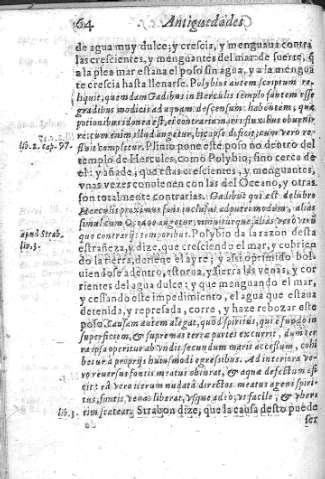 64 Antiguedades
de agua muy dulce, y crescia, y menguaua contra
las crescientes, y menguantes del mar: de suerte, q̃
a la plea mar estaua el poso sin agua, y a la mengua
te crescia hasta llenarse. Polybius autem scriptum re-
liquit, quemdam Gadibus in Herculis templo fontem esse
gradibus modicis ad aquam descensum habentem, qua
potioni bus idonea est, et contrarium aeris fluxibus
rit: cum enim illud augetur, hic aqua deficit; cum vero re-
lib. 2. cap. 97. fluit completur. Plinio pone este poso no dentro del
templo de Hercules, como Polybio, sino cerca de
el: y añade, que estas crescientes, y menguantes,
vnas vezes conuienen con las del Oceano, y otras
son totalmente contrarias. Gadibus qui est delubro
Herculis proximus fons inclusus ad putei modum, alias
simul cum Oceano augetur, minuiturque, alias vero
que contrarijs temporibus. Polybio da la razon desta
apud Strab. estrañeza, y dize, que cresciendo el mar, y cubrien
lib. 3. do la tierra, detiene el ayre; y assi oprimido bol-
uiendose adentro, estorua, y sierra las venas, y cor
rientes del agua dulce; y que menguando el mar,
y cessando este impedimento, el agua que estaua
detenida, y represada, corre, y haze rebozar este
poso. Causam autem alegat, quod spiritus, qui e fundo in
superficiem, & supremas terrae partes excurrit, dum ter
ra ipsa operitur ab vndis secundum maris accessum, cohi
betur a proprijs huiusmodi egresibus. Ad interiora ve-
ro reuersus fontis meatus obturat, & aquae defectum ef-
ficit: at vero iterum nudata directos meatus agens spiri-
tus, fontis, venas liberat, vsque adeo, vt facile, & vber
lib. 3. tim scateat. Strabon dize, que la causa desto puede
ser